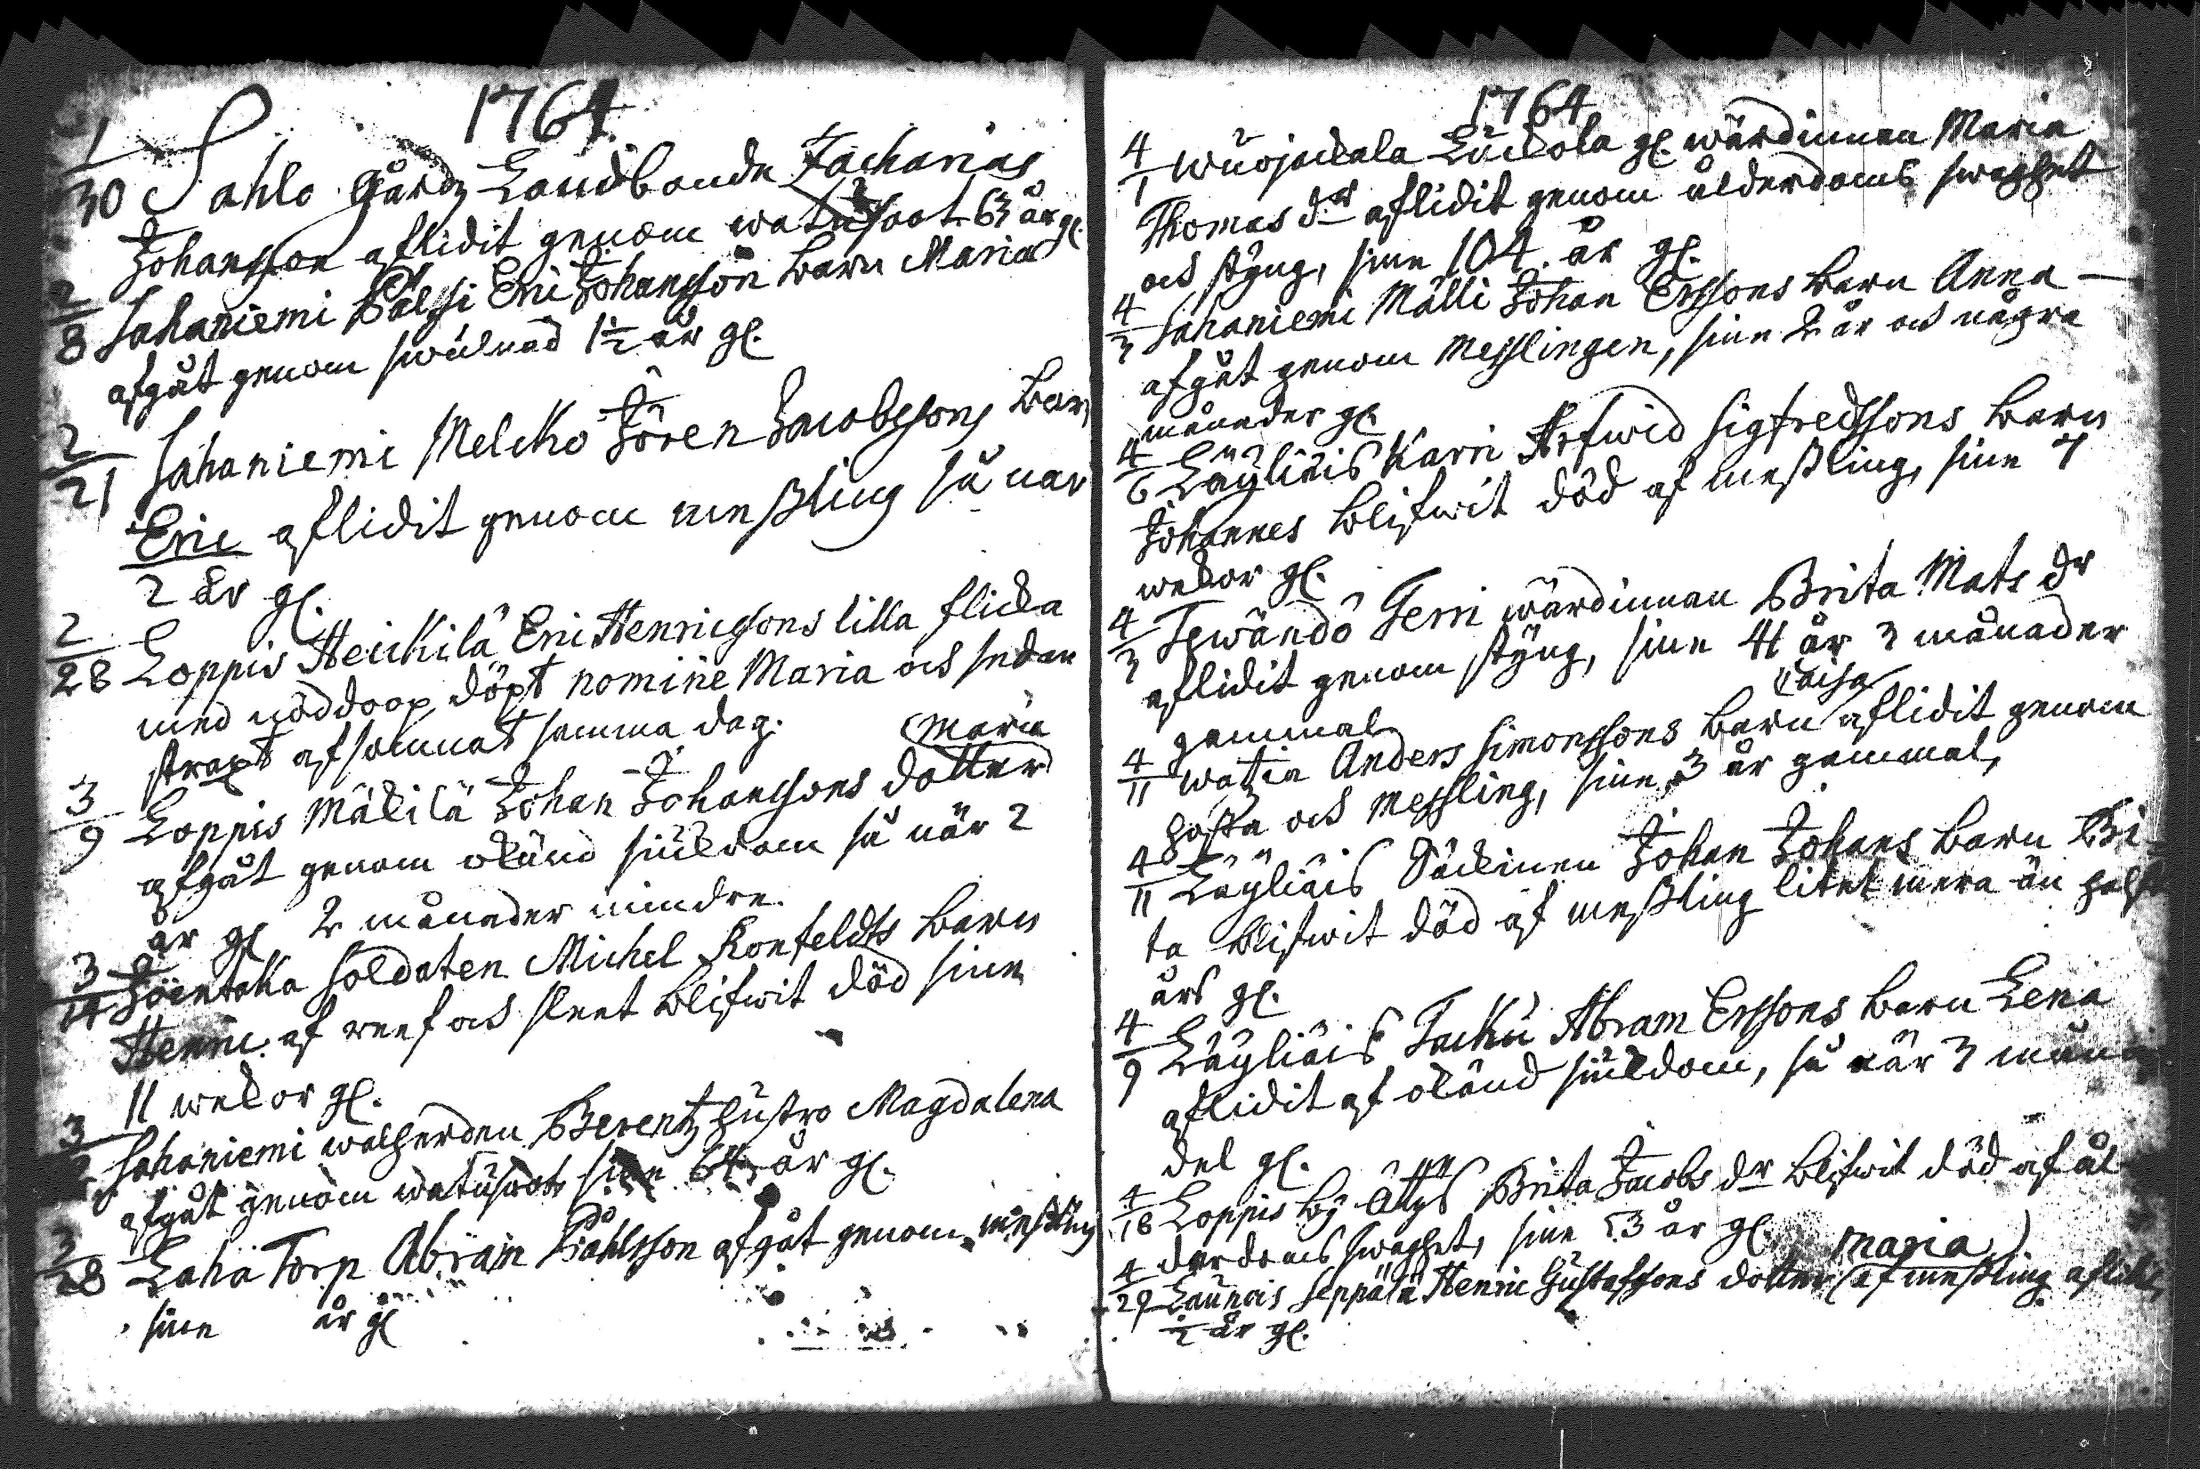 1764.
1/30 Sahlo gårdz Landbonde Zacharias
Johansson aflidit genom watusoot 63 år gl.
2/8 Sahaniemi Pälssi Eric Johansson barn Maria
afgåt genom swulnad 1½ år gl.
2/21 Sahaniemi Melcko Jören Jacobssons barn
Eric aflidit genom messling så när
2 år gl.
2/28 Loppis Heickilä Eric Henricssons lilla flicka
med nöddoop döpt nomine Maria och sedan
straxt afsomnat samma dag.
3/9 Loppis Mäkilä Johan Johanssons dotter (Maria
afgåt genom okänd siukdom så när 2
år gl 2 månader mindre.
3/14 Joentaka soldaten Michel Ronfeldts barn
Henric af reef och sleet blifwit död sine
11 wekor gl.
3/ Sahaniemi walherden Berentz hustro Magdalena
afgåt genom watusoot sine 64 år gl.
3/28 Laha Torp Abram Påhlsson afgåt genom messling
sine år gl
1764
4/1 Wuojackala Luckola gl. wärdinnan Maria
Thomas dr aflidit genom ålderdoms swaghet
och styng, sine 104. år gl.
4/3 Sahaniemi Mälli Johan Erssons barn Anna
afgåt genom Messlingen, sine 2 år och några
månader gl.
4/6 Läyliäis Karri Arfwid Sigfredssons barn
Johannes blifwit död af messling, sine 7
wekor gl.
4/3 Tewändö Terri wärdinnan Brita Mats dr
aflidit genom styng, sine 41 år 3 månader
gammal
4/11 Watzia Anders Simonssons barn Caisa aflidit genom
hosta och Messling, sine 3 år gammal,
4/11 Läyliäis Säckinen Johan Johans barn Bri-
ta blifwit död af messling litet mera än half
års gl.
4/9 Läyliäis Tacku Abram Erssons barn Lena
aflidit af okänd siukdom, så när 3 måna
del gl.
4/18 Loppis by Ättys Brita Jacobs dr blifwit död af ål-
derdoms swaghet, sine 53 år gl.
4/29 Launois Seppälä Henric Gustafssons dotter (Maria) af messling aflidit
½ år gl.